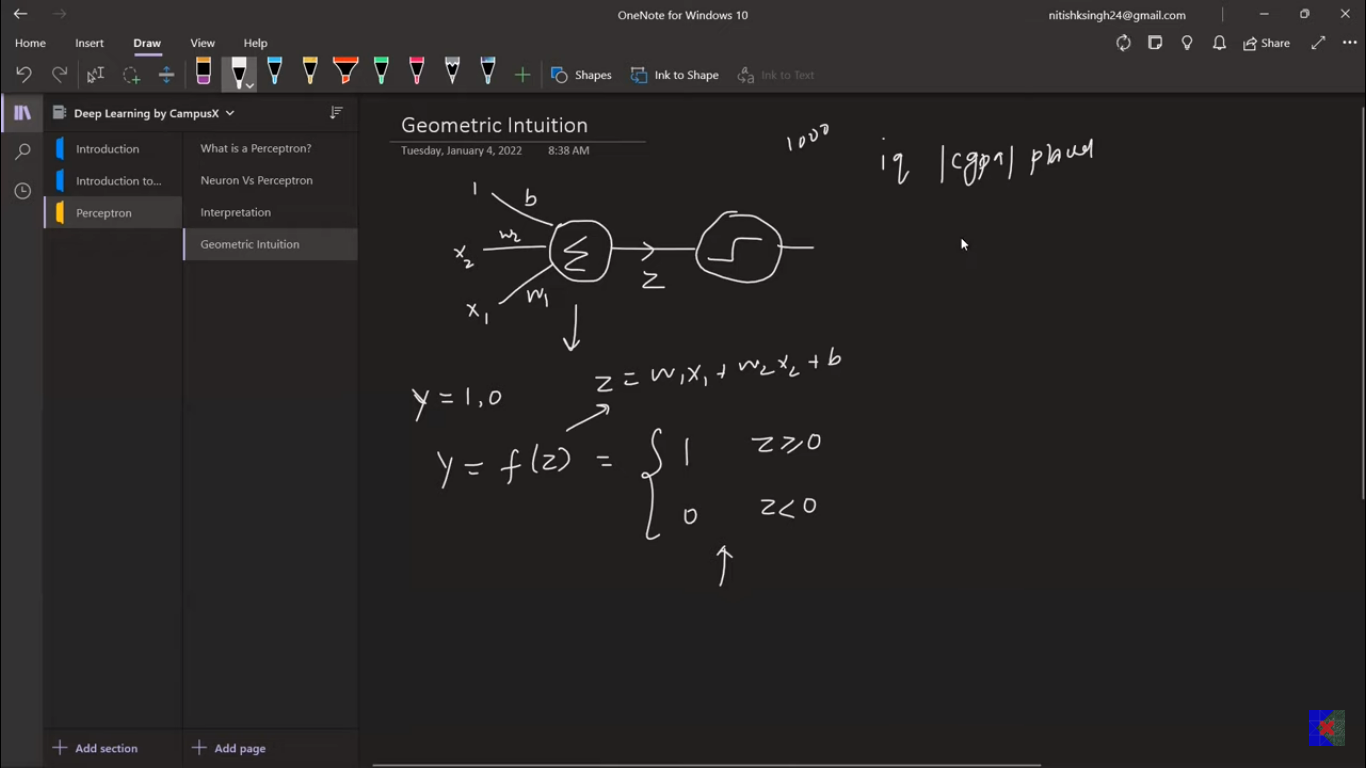 OneNote for Windows 10
nitishksingh24@gmail.com
Home Insert Draw View Help
Share
Shapes Ink to Shape Ink to Text
Deep Learning by CampusX
Introduction
Introduction to...
Perceptron
What is a Perceptron?
Neuron Vs Perceptron
Interpretation
Geometric Intuition
Add section
Add page
Geometric Intuition
Tuesday, January 4, 2022 8:38 AM
1000
iq |cgpa|
1 b
x₂ w₂ Σ
z
x₁ w₁
z = w₁x₁ + w₂x₂ + b
y = 1,0
y = f(z) = { 1 z ≥ 0
0 z < 0